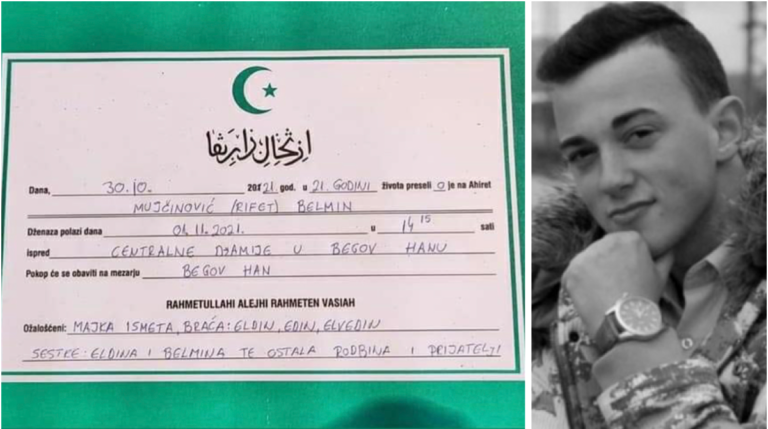 Dana, 30.10. 2021. god. u 21. GODINI života preseli O je na Ahiret
MUJČINOVIĆ (RIFET) BELMIN
Dženaza polazi dana 01.11.2021. u 14 15 sati
ispred CENTRALNE DŽAMIJE U BEGOV HANU
Pokop će se obaviti na mezarju BEGOV HAN
RAHMETULLAHI ALEJHI RAHMETEN VASIAH
Ožalošćeni: MAJKA ISMETA, BRAĆA: ELDIN, EDIN, ELVEDIN
SESTRE: ELDINA I BELMINA TE OSTALA RODBINA I PRIJATELJI